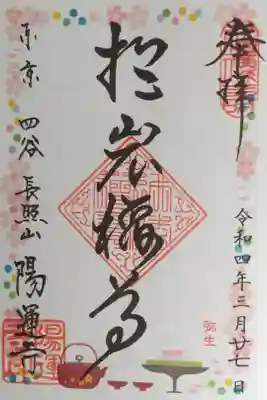 奉拝
令和四年三月廿七日
弥生
於岩稲荷
東京 四谷 長照山 陽運寺